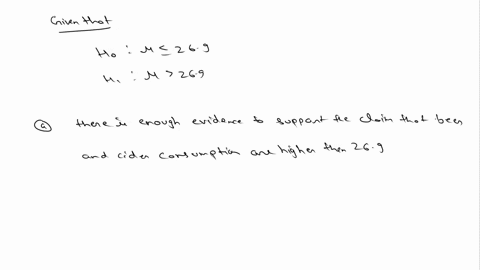 Given that
H₀ : μ ≤ 26.9
H₁ : μ > 26.9
ⓐ there is enough evidence to support the claim that beer
and cider consumption are higher then 26.9